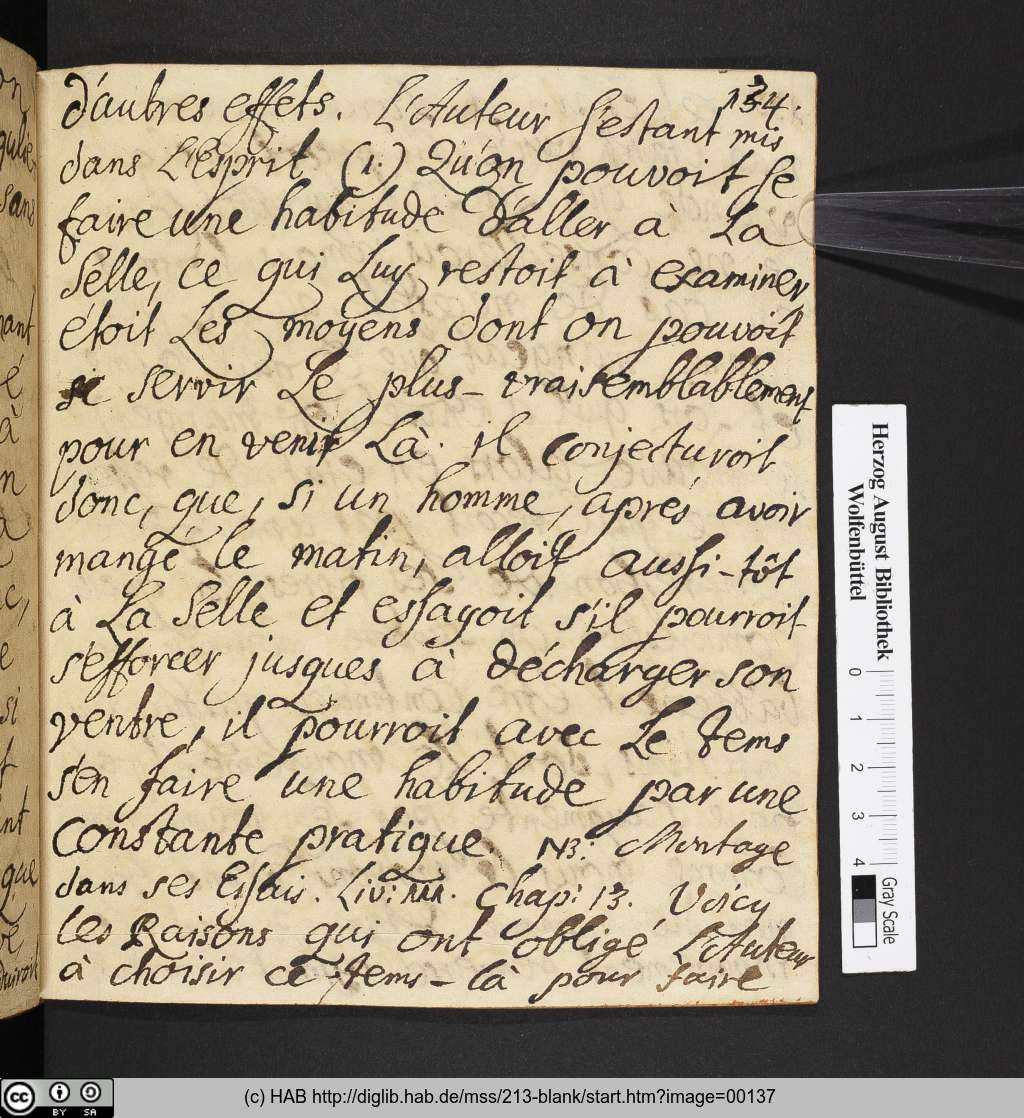 134.
d'autres effets. L'Auteur s'estant mis
dans L'Esprit (1.) Qu'on pouvoit se
faire une habitude d'aller à La
Selle, ce qui Luy restoit à examiner
étoit Les moyens dont on pouvoit
se servir Le plus-vraisemblablement
pour en venir Là. il conjecturoit
donc, que, si un homme, aprés avoir
mangé le matin, alloit aussi-tôt
à La Selle et essayoit s'il pourroit
s'efforcer jusques à décharger son
ventre, il pourroit avec Le tems
s'en faire une habitude par une
constante pratique. NB: Montage
dans ses Essais. Liv: III. Chap: 13. Voicy
les Raisons qui ont obligé L'Auteur
à choisir ce tems-là pour faire
on
sans
nant
é
à
n
a
c,
e
si
t
nt
que
Herzog August Bibliothek
Wolfenbüttel
0 1 2 3 4
Gray Scale
cc BY SA
(c) HAB http://diglib.hab.de/mss/213-blank/start.htm?image=00137